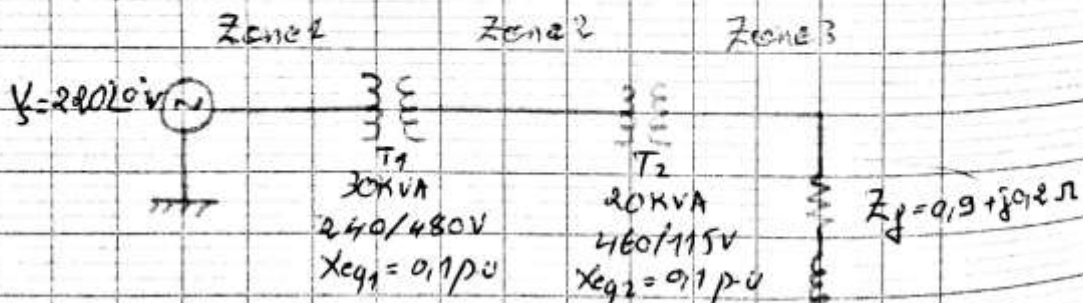 Zone 1 Zone 2 Zone 3
Vs=220∠0°V
T1
30KVA
240/480V
Xeq1 = 0,1 p.u
T2
20KVA
460/115V
Xeq2 = 0,1 p.u
Zy = 0,9 + j0,2 Ω